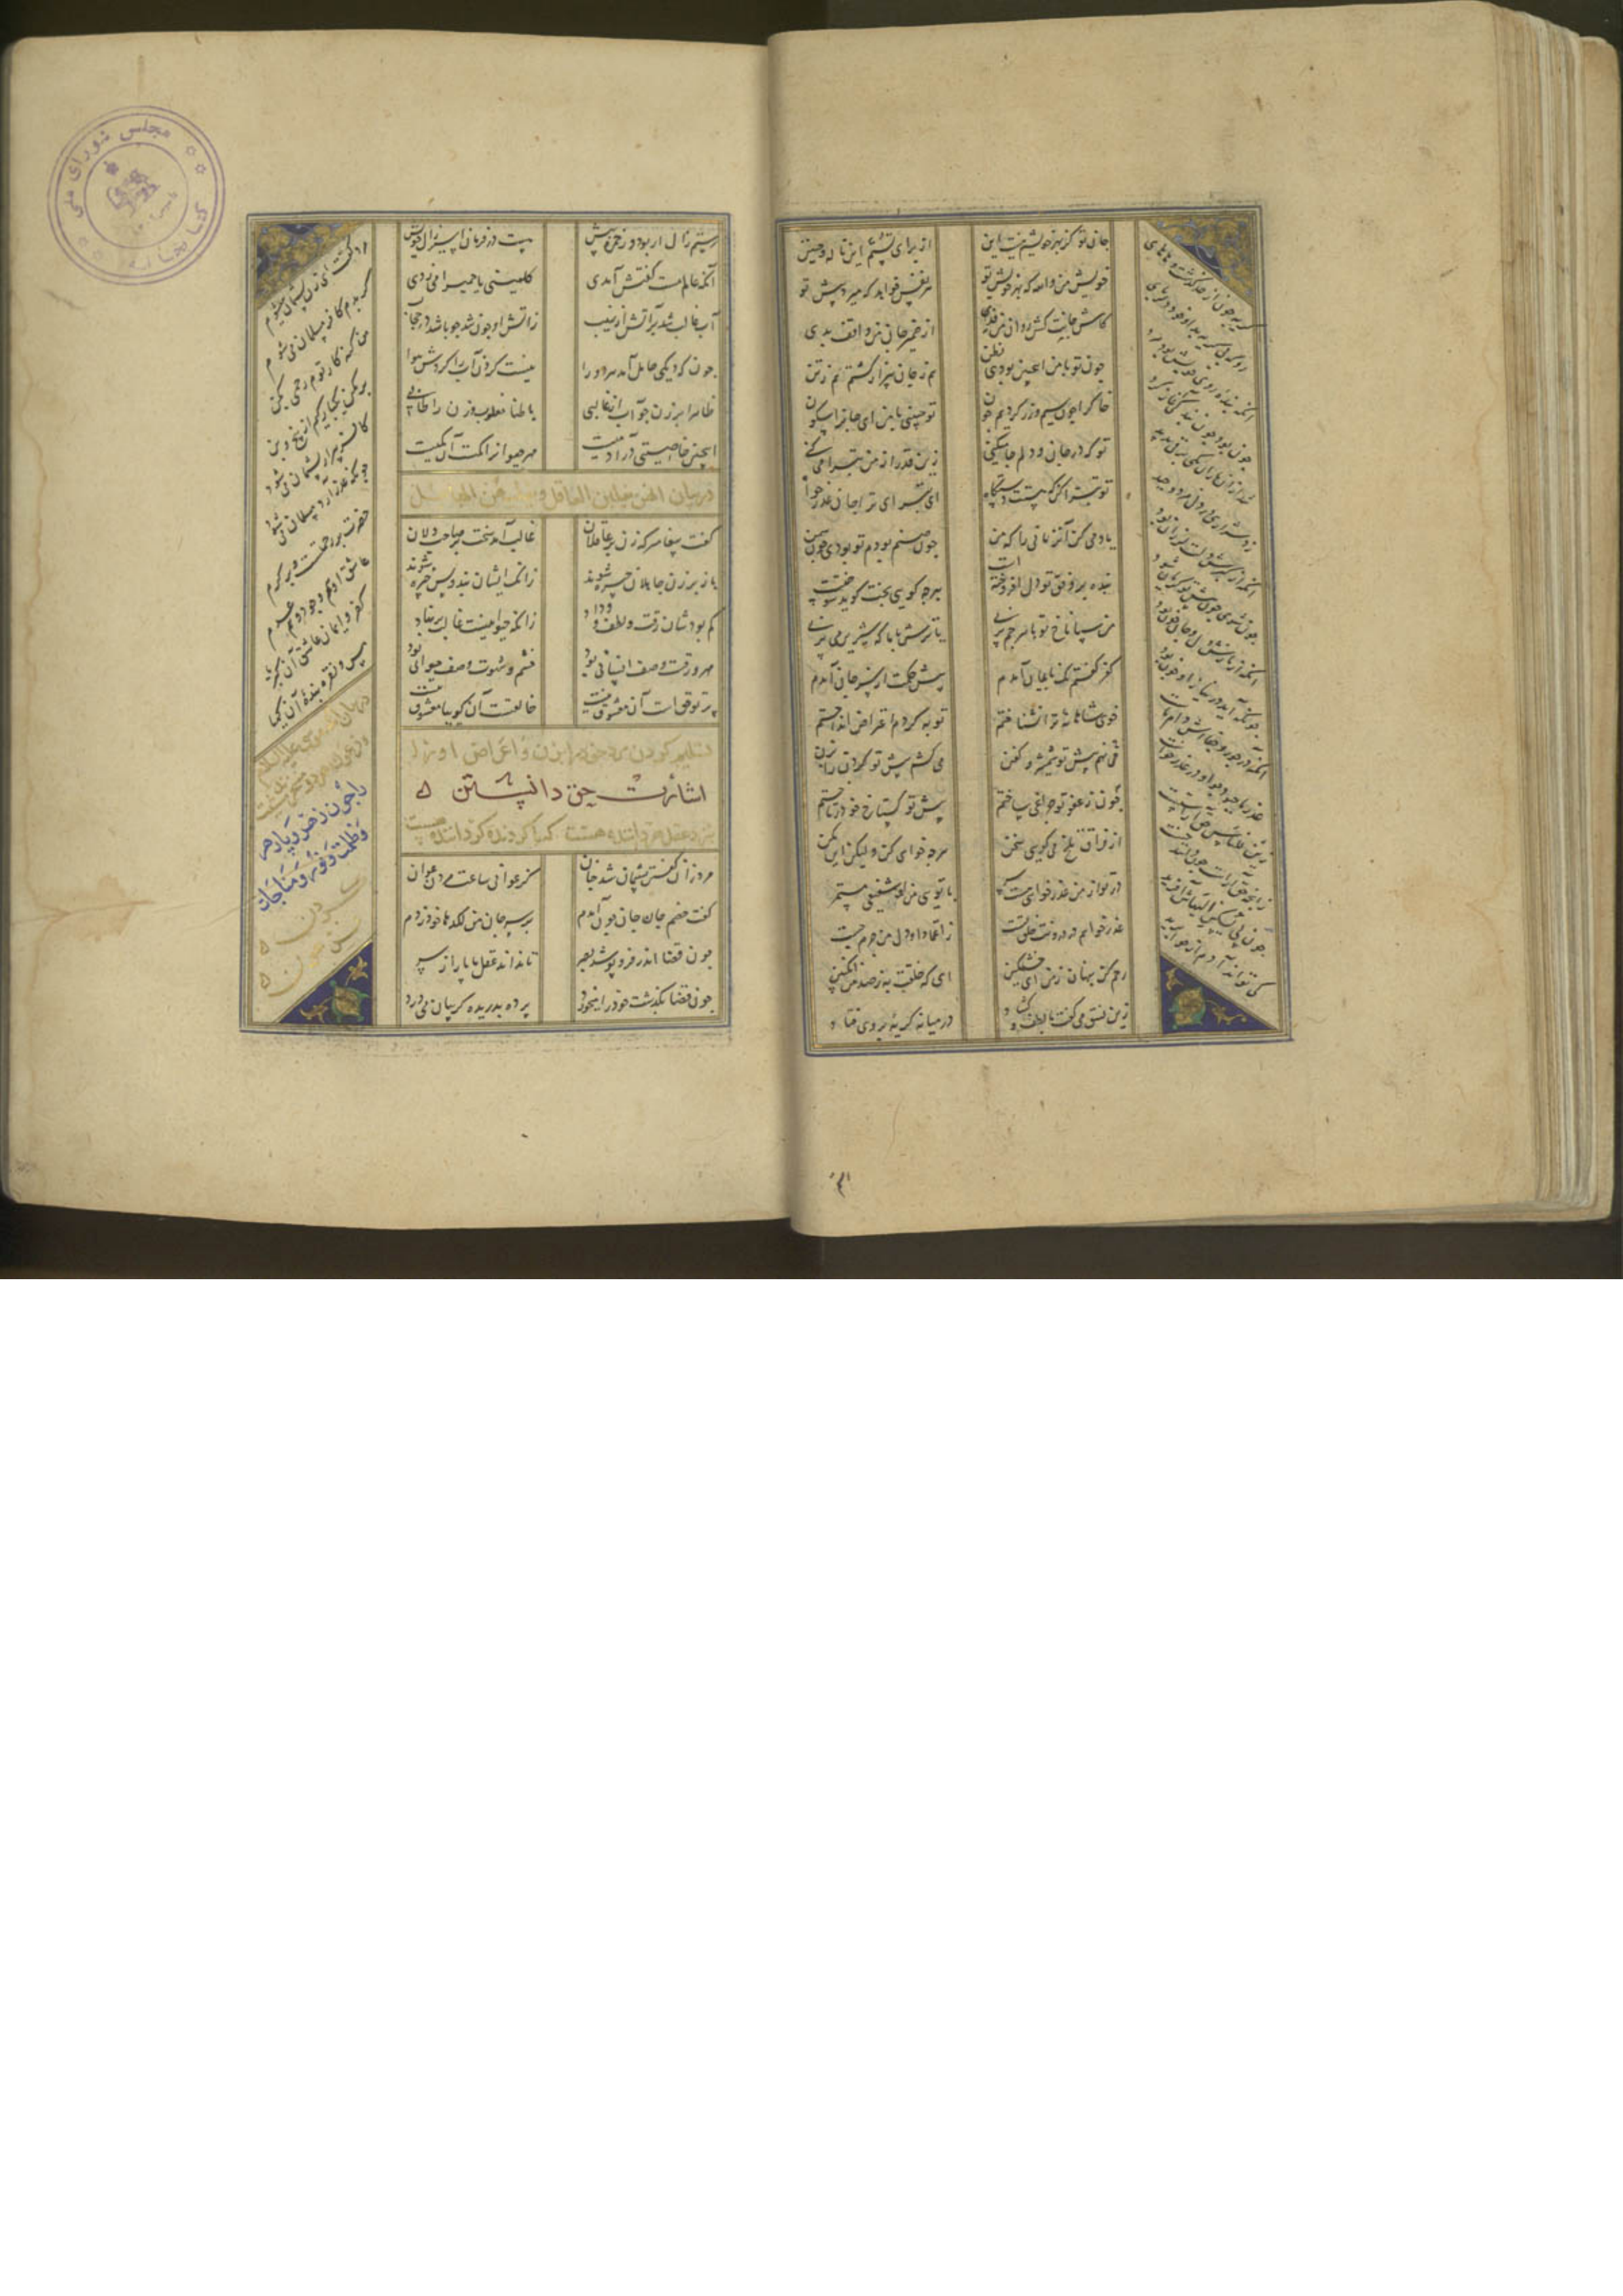 جان تو کز بهر خویشم نیست این از برای تستم این ناله و حنین
خویش من والله که بهر خویش تو هر نفس خواهد که میرد پیش تو
کاش جانت کش روان من فدی از ضمیر جان من واقف بدی
چون تو با من اینچنین بودی بظن هم ز جان بیزار گشتم هم ز تن
خاک را چون سیم و زر کردیم چون تو چنینی با من ای جان را سکون
تو که در جان و دلم جا میکنی زین قدر از من تبرا میکنی
تو تبرا کن که هستت دستگاه ای تبرای ترا جان عذرخواه
یاد می کن آن زمانی را که من چون صنم بودم تو بودی چون شمن
بنده بر وفق تو دل افروخته است هرچه گویی پخت گوید سوخته است
من سپاناخ تو با هرچم پزی یا ترش با یا که شیرین می پزی
کفر گفتم نک بایمان آمدم پیش حکمت از سر جان آمدم
خوی شاهانه ترا نشناختم توبه کردم اعتراض انداختم
می نهم پیش تو شمشیر و کفن می کشم پیش تو گردن را بزن
چون ز عفو تو چراغی ساختم پیش تو گستاخ خود در تاختم
از فراق تلخ می گویی سخن هرچه خواهی کن ولیکن این مکن
در تو از من عذرخواهی هست سر با تو بی من او شفیعی مستمر
عذر خواهم در درونت خلق تست ز اعتماد او دل من جرم جست
رحم کن پنهان ز من ای خشمگین ای که خلقت به ز صد من انگبین
زین نسق می گفت با لطف و گشاد در میانه گریه بروی فتاد
گریه چون از حد گذشت و های های
زو که بی گریه بد او خود دلربای
آنکه بنده روی خوبش بود مرد
چون بود چون بندگی آغاز کرد
شد از آن باران یکی برقی پدید
زد شراری در دل مرد وحید
آنکه از کبرش دلت لرزان بود
چون شوی چون پیش تو گریان شود
آنکه از نازش دل و جان خون بود
چونکه آید در نیاز او چون بود
آنکه در جور و جفااش دام ماست
عذر ما چبود چو او در عذر خاست
زین للناس حق آراستست
زانچه حق آراست چون دانند جست
چون پی یسکن الیهاش آفرید
کی تواند آدم از حوا برید
رستم زال ار بود وز حمزه پیش هست در فرمان اسیر زال خویش
آنکه عالم مست گفتش آمدی کلمینی یا حمیرا می زدی
آب غالب شد بر آتش از نهیب ز آتش او جوشد چو باشد در حجاب
چونکه دیکی حایل آمد هر دو را نیست کرد آن آب را کردش هوا
ظاهرا بر زن چو آب ار غالبی باطنا مغلوب و زن را طالبی
اینچنین خاصیتی در آدمیست مهر حیوانرا کمست آن از کمیست
در بیان الخبر یغلبن العاقل ویغلبهن الجاهل
گفت پیغامبر که زن بر عاقلان غالب آید سخت و بر صاحب دلان
باز بر زن جاهلان چیره شوند زانک ایشان تند و بس خیره شوند
کم بودشان رقت و لطف و وداد زانکه حیوانیست غالب بر نهاد
مهر و رقت وصف انسانی بود خشم و شهوت وصف حیوانی بود
پرتو حق است آن معشوق نیست خالقست آن گوییا مخلوق نیست
تسلیم کردن مرد خود را بزن و اعتراض او را
اشارت حق دانستن
بنزد عقل هر داننده هست که با گردنده گرداننده هست
مرد زان گفتن پشیمان شد چنان کز عوانی ساعت مردن عوان
گفت خصم جان جان چون آمدم بر سر جان من لکدها خود زدم
چون قضا اندر فرو پوشد بصر تا نداند عقل ما پا را ز سر
چون قضا بگذشت خود را میخورد پرده بدریده گریبان می درد
مرد گفت ای زن پشیمان میشوم
گر بدم کافر مسلمان می شوم
من گنه کار توم رحمی بکن
بر مکن یکبارگیم از بیخ و بن
کافر پیر ار پشیمان می شود
چونکه عذر آرد مسلمان می شود
حضرت پر رحمت و پر کرم
عاشق او هم وجود و هم عدم
کفر و ایمان عاشق آن کبریا
مس و نقره بنده آن کیمیا
در بیان آنکه موسی علیه السلام
و فرعون هر دو مسخر مشیت اند
چون زهر و پازهر
و ظلمت و نور و مناجات
کردن
فرعون
کتابخانه مجلس شورای ملی